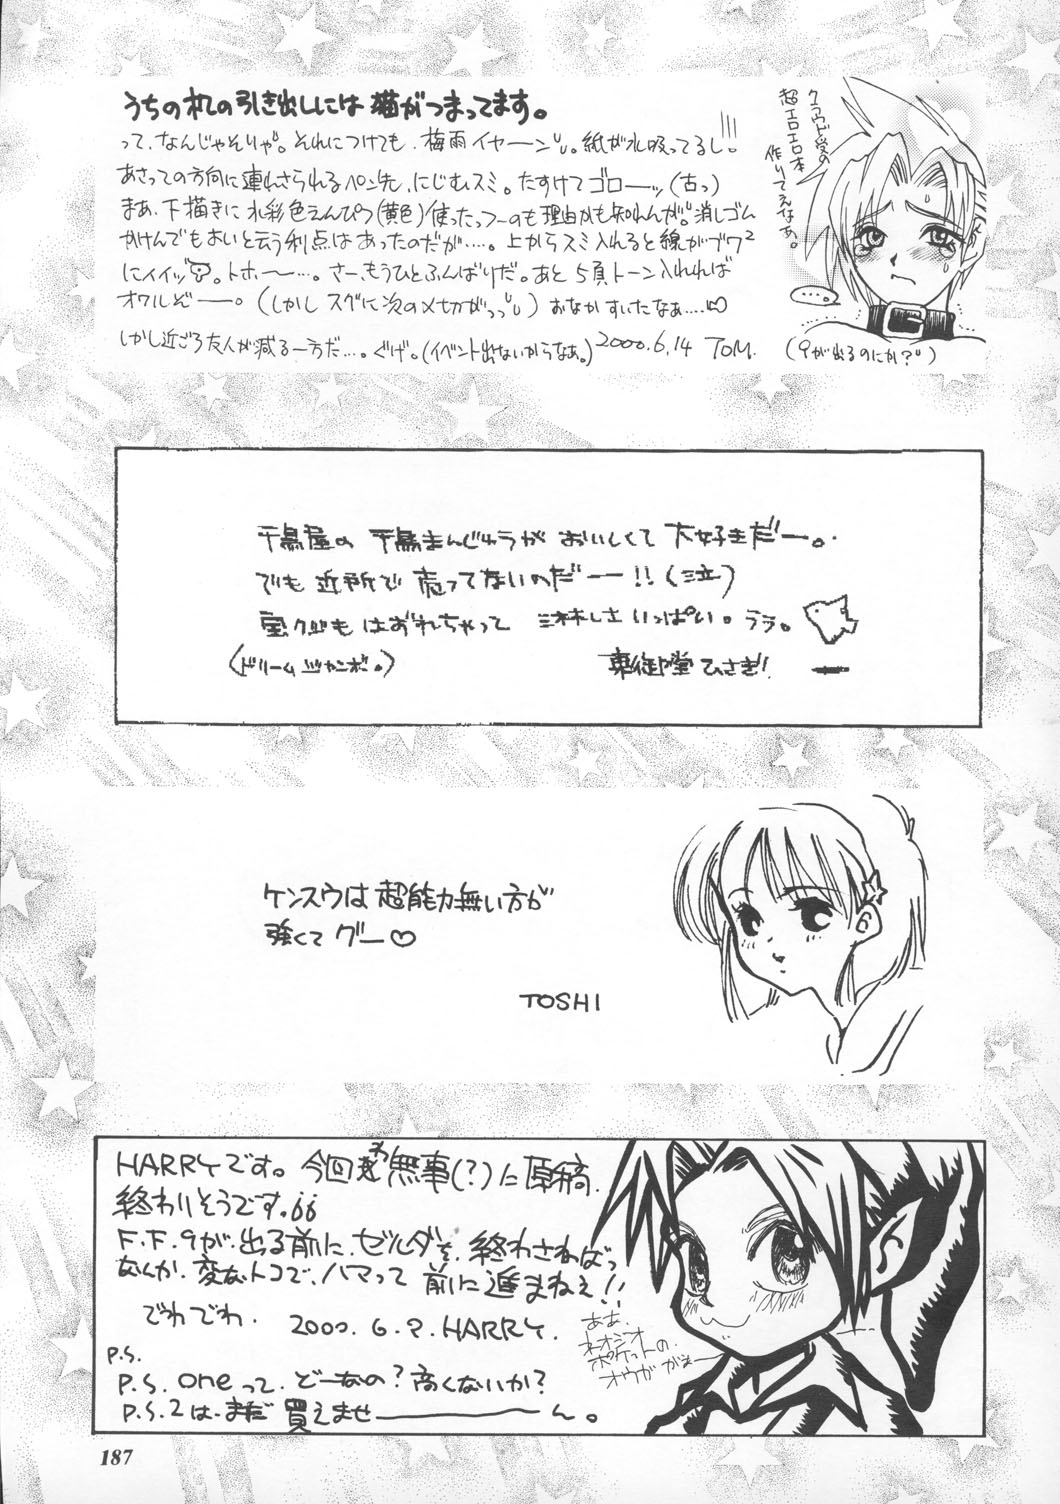 うちの机の引き出しには猫がつまってます。
って、なんじゃそりゃ。それにつけても、梅雨イヤーン。紙が水吸ってるし!!!
あさっての方向に連れさられるペン先、にじむスミ。たすけてゴローッ(古っ)
まあ、下描きに水彩色えんぴつ(黄色)使ったっつーのも理由かも知れんが。消しゴム
かけんでもよいと云う利点はあったのだが……。上からスミ入れると線がゴワ2
にイイッ。トホー…。さー、もうひとふんばりだ。あと5頁トーン入れれば
オワルぞー。(しかしスグに次の〆切がっっ)おなかすいたなぁ….♡
しかし近ごろ友人が減る一方だ…。ぐげ。(イベント出ないからなあ。)2000.6.14 TOM.
クラウド受の
超エロエロ本
作りてえなぁ。
……
(9が出るのにか?)
千鳥屋の千鳥まんじゅうがおいしくて大好きだー。
でも近所で売ってないのだー!!(泣)
宝クジもはずれちゃって淋しさいっぱい。ララ。
(ドリームジャンボ。)
東御堂ひさぎ!
ケンスウは超能力無い方が
強くてグー♡
TOSHI
HARRYです。今回も無事(?)に原稿
終わりそうです。
F.F.9が出る前に、ゼルダを、終わさねばっ
なんか、変なトコで、ハマって前に進まねぇ!!
でわでわ.
2000.6.?.HARRY.
P.S.
P.S.oneって、どーなの?高くないか?
P.S.2は、まだ買えませーーーん。
ああ、
ネオジオ
ポケットの、
オウガがぁー
187